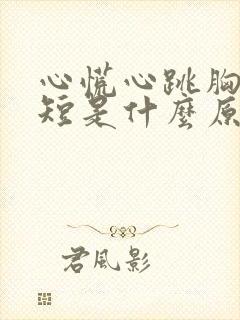 心慌心跳胸
短是什麼原
君風影